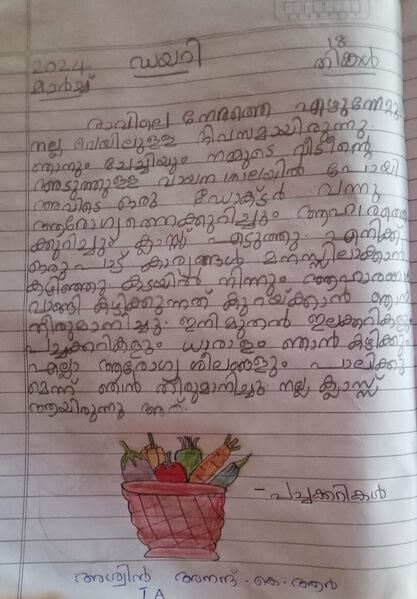 ഡയറി
18
2024
തിങ്കൾ
മാർച്ച്
രാവിലെ നേരത്തെ എഴുന്നേറ്റു.
നല്ല വെയിലുള്ള ദിവസമായിരുന്നു.
ഞാനും ചേച്ചിയും നമ്മുടെ വീടിന്റെ
അടുത്തുള്ള വായനശാലയിൽ പോയി
അവിടെ ഒരു ഡോക്ടർ വന്നു
ആരോഗ്യത്തെക്കുറിച്ചും ആഹാരത്തെ
ക്കുറിച്ചും ക്ലാസ്സ് എടുത്തു. എനിക്ക്
ഒരുപാട് കാര്യങ്ങൾ മനസ്സിലാക്കാൻ
കഴിഞ്ഞു. കടയിൽ നിന്നും ആഹാരങ്ങൾ
വാങ്ങി കഴിക്കുന്നത് കുറയ്ക്കാൻ ഞാൻ
തീരുമാനിച്ചു. ഇനി മുതൽ ഇലക്കറികളും
പച്ചക്കറികളും ധാരാളം ഞാൻ കഴിക്കും
എല്ലാ ആരോഗ്യശീലങ്ങളും പാലിക്കു
മെന്ന് ഞാൻ തീരുമാനിച്ചു. നല്ല ക്ലാസ്സ്
ആയിരുന്നു അത്.
- പച്ചക്കറികൾ
അശ്വിൻ ആനന്ദ്. കെ. ആർ
I A